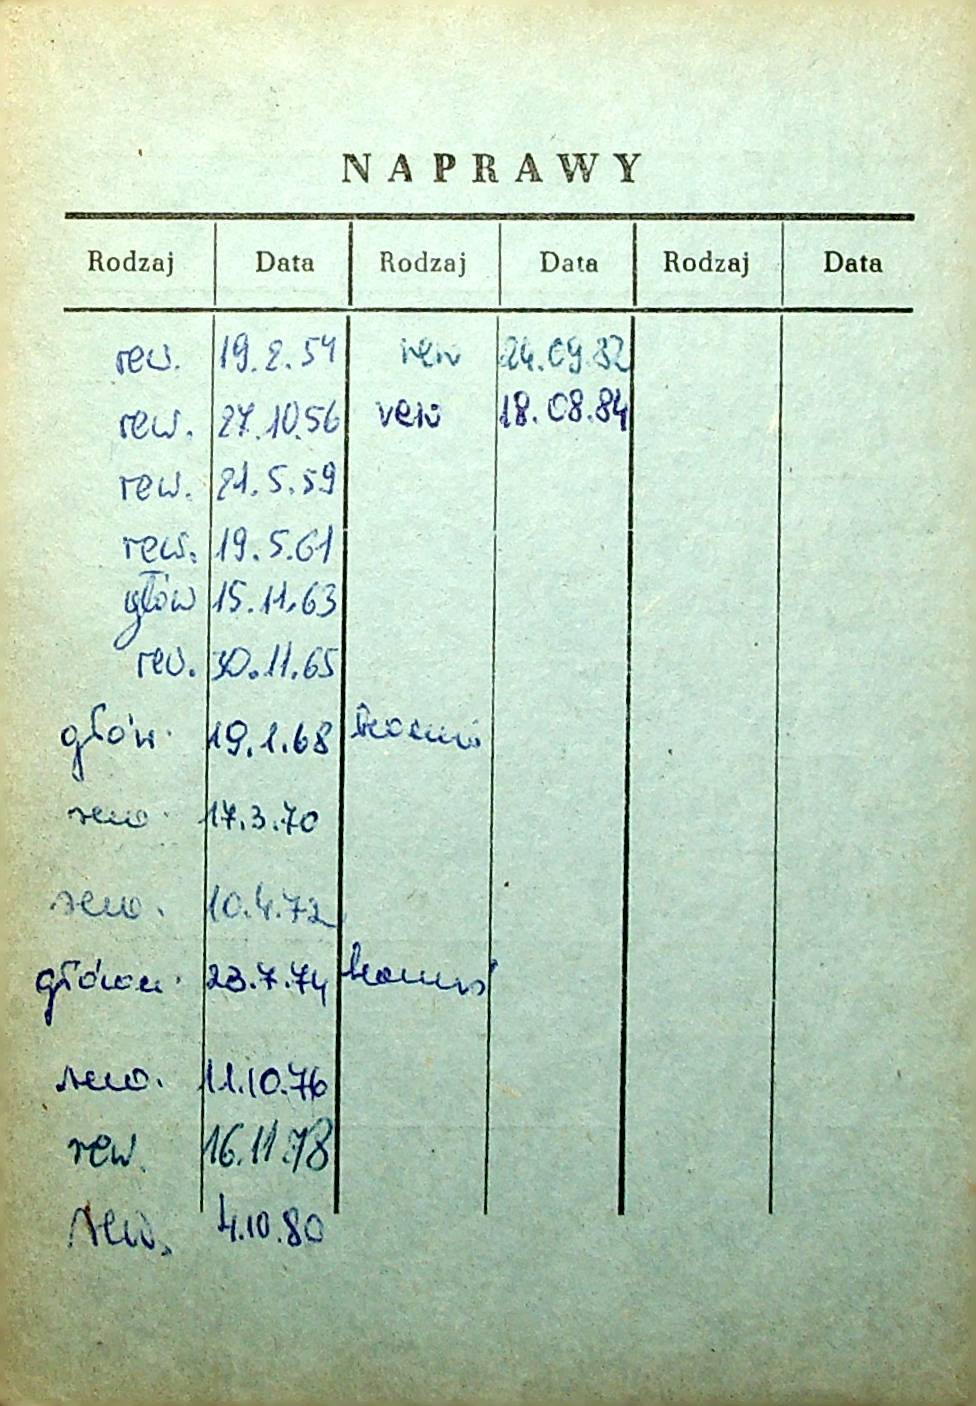 NAPRAWY
Rodzaj Data Rodzaj Data Rodzaj Data
rew. 19.2.54 rew 24.09.82
rew. 27.10.56 rew 18.08.84
rew. 21.5.59
rew. 19.5.61
głów 15.11.63
rew. 30.11.65
głów. 19.1.68
rew. 17.3.70
rew. 10.4.72
główn. 23.7.74
rew. 11.10.76
rew. 16.11.78
rew. 4.10.80